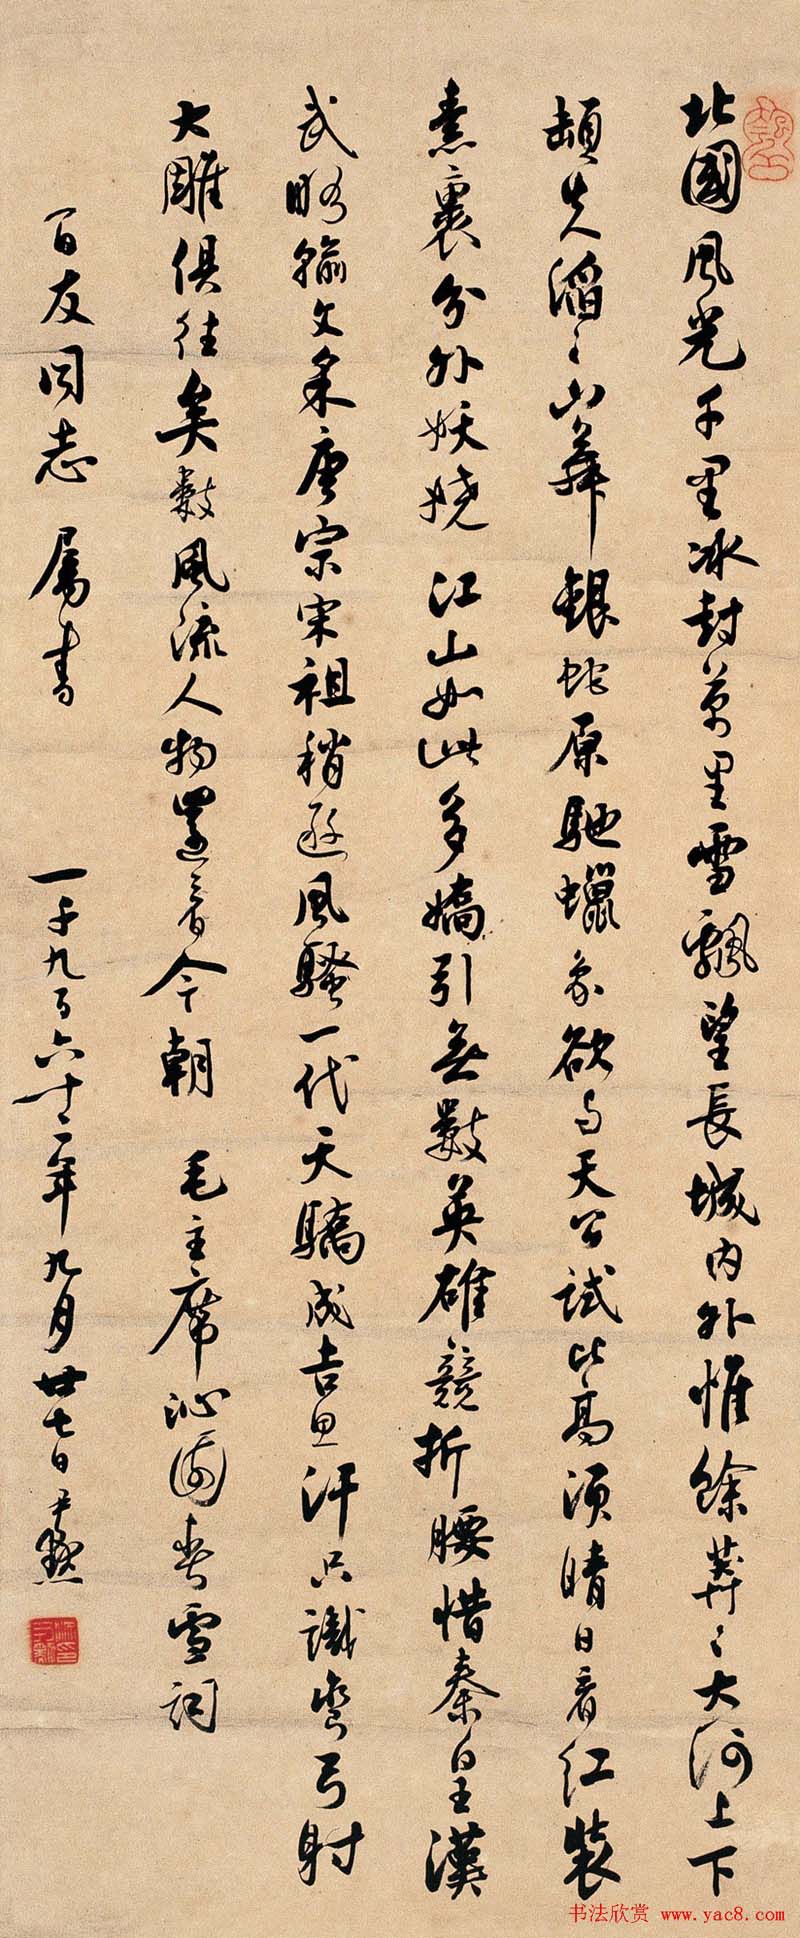 北國風光千里冰封萬里雪飄望長城內外惟餘莽々大河上下
頓失滔々山舞銀蛇原馳蠟象欲与天公試比高須晴日看紅裝
素裹分外妖嬈江山如此多嬌引無數英雄競折腰惜秦皇漢
武略輸文采唐宗宋祖稍遜風騷一代天驕成吉思汗只識彎弓射
大雕俱往矣數風流人物還看今朝 毛主席沁園春雪詞
百友同志屬書 一千九百六十二年九月廿七日尹默
书法欣赏 www.yac8.com